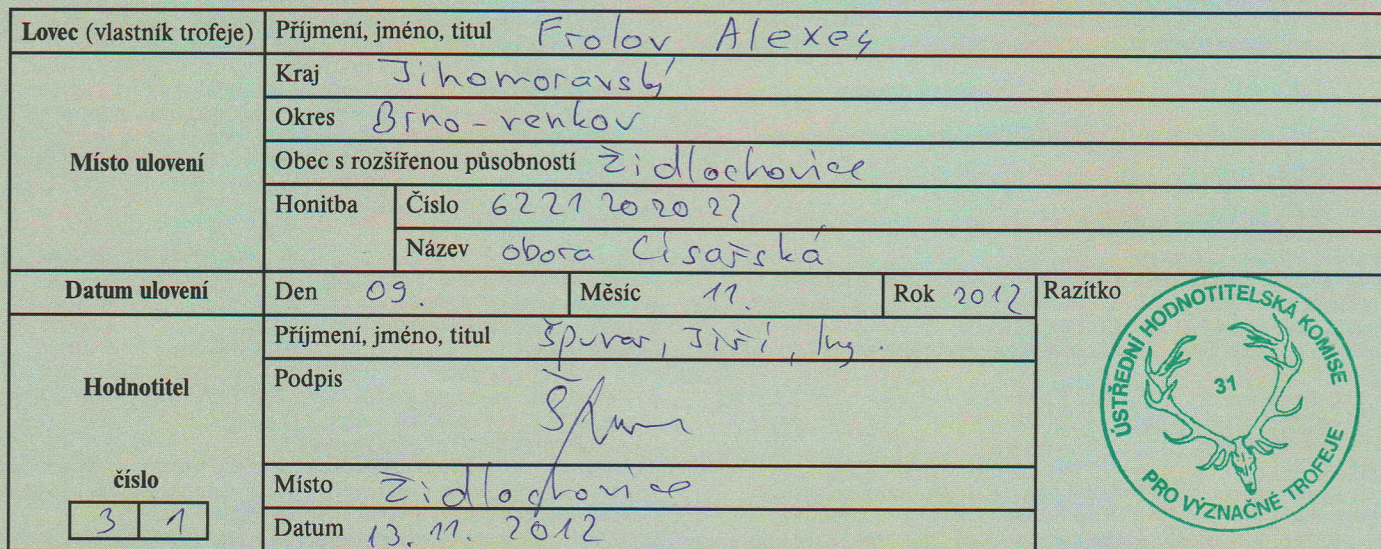 Lovec (vlastník trofeje) Příjmení, jméno, titul Frolov Alexey
Místo ulovení
Kraj Jihomoravský
Okres Brno-venkov
Obec s rozšířenou působností Židlochovice
Honitba Číslo 6221202022
Název obora Císařská
Datum ulovení Den 09. Měsíc 11. Rok 2012
Razítko
ÚSTŘEDNÍ HODNOTITELSKÁ KOMISE
31
PRO VÝZNAČNÉ TROFEJE
Hodnotitel
číslo
3 1
Příjmení, jméno, titul Jiří, Ing.
Podpis
Místo Židlochovice
Datum 13. 11. 2012